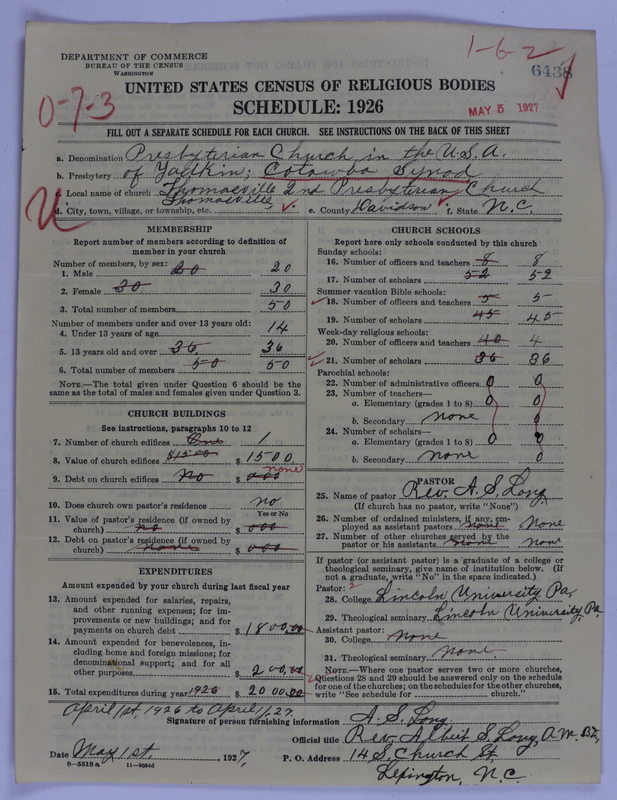 DEPARTMENT OF COMMERCE
BUREAU OF THE CENSUS
WASHINGTON
1-6-2
6438
0-7-3
UNITED STATES CENSUS OF RELIGIOUS BODIES
SCHEDULE: 1926
MAY 5 1927
FILL OUT A SEPARATE SCHEDULE FOR EACH CHURCH. SEE INSTRUCTIONS ON THE BACK OF THIS SHEET
a. Denomination Presbyterian Church in the U.S.A.
b. Presbytery of Yadkin; Catawba Synod
c. Local name of church Thomasville 2nd Presbyterian Church
d. City, town, village, or township, etc. Thomasville e. County Davidson f. State N.C.
MEMBERSHIP
Report number of members according to definition of member in your church
Number of members, by sex:
1. Male 20 20
2. Female 30 30
3. Total number of members 50
Number of members under and over 13 years old:
4. Under 13 years of age 14
5. 13 years old and over 36 36
6. Total number of members 50 50
NOTE.—The total given under Question 6 should be the same as the total of males and females given under Question 3.
CHURCH BUILDINGS
See instructions, paragraphs 10 to 12
7. Number of church edifices One 1
8. Value of church edifices $1500 $ 1500
none
9. Debt on church edifices No $ 000
10. Does church own pastor's residence no
Yes or No
11. Value of pastor's residence (if owned by
church) no $ 000
12. Debt on pastor's residence (if owned by
church) none $ 000
EXPENDITURES
Amount expended by your church during last fiscal year
13. Amount expended for salaries, repairs,
and other running expenses; for im-
provements or new buildings; and for
payments on church debt $ 1800.00
14. Amount expended for benevolences, in-
cluding home and foreign missions; for
denominational support; and for all
other purposes $ 200.00
15. Total expenditures during year 1926 $ 2000.00
April 1st, 1926 to April 1/27
CHURCH SCHOOLS
Report here only schools conducted by this church
Sunday schools:
16. Number of officers and teachers 8 8
17. Number of scholars 52 52
Summer vacation Bible schools:
18. Number of officers and teachers 5 5
19. Number of scholars 45 45
Week-day religious schools:
20. Number of officers and teachers 40 4
21. Number of scholars 36 36
Parochial schools:
22. Number of administrative officers 0 0
23. Number of teachers—
a. Elementary (grades 1 to 8) 0 0
b. Secondary none 0
24. Number of scholars—
a. Elementary (grades 1 to 8) 0 0
b. Secondary none 0
PASTOR
25. Name of pastor Rev. A. S. Long
(If church has no pastor, write "None")
26. Number of ordained ministers, if any, em-
ployed as assistant pastors none None
27. Number of other churches served by the
pastor or his assistants none None
If pastor (or assistant pastor) is a graduate of a college or
theological seminary, give name of institution below. (If
not a graduate, write "No" in the space indicated.)
Pastor:
28. College Lincoln University Pa.
29. Theological seminary Lincoln University, Pa
Assistant pastor:
30. College none
31. Theological seminary none
NOTE.—Where one pastor serves two or more churches,
Questions 28 and 29 should be answered only on the schedule
for one of the churches; on the schedules for the other churches,
write "See schedule for church."
Signature of person furnishing information A. S. Long
Official title Rev. Albert S. Long, A.M.
Date May 1st, 1927, P. O. Address 14 S. Church St.
8-5518 a 11-90846
Lexington, N.C.